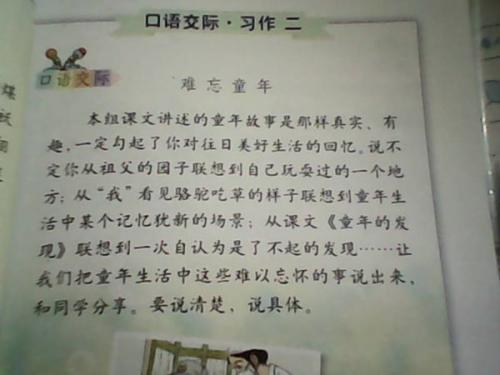 口语交际·习作 二
口语交际
难忘童年
本组课文讲述的童年故事是那样真实、有
趣，一定勾起了你对往日美好生活的回忆。说不
定你从祖父的园子联想到自己玩耍过的一个地
方；从“我”看见骆驼吃草的样子联想到童年生
活中某个记忆犹新的场景；从课文《童年的发
现》联想到一次自认为是了不起的发现……让
我们把童年生活中这些难以忘怀的事说出来，
和同学分享。要说清楚，说具体。